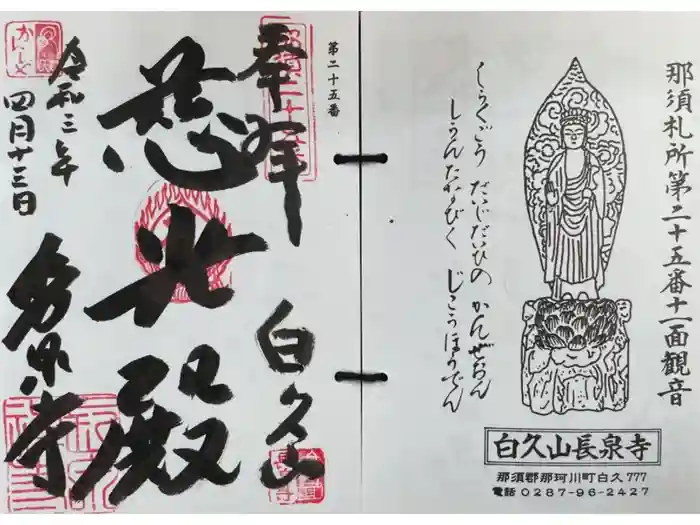 那須札所第二十五番十一面観音
しらくごう だいじだいひの かんぜおん
しうんたなびく じこうほうでん
白久山長泉寺
那須郡那珂川町白久777
電話 0287-96-2427
第二十五番
奉拝
白久山
慈光殿
令和三年
四月十三日
長泉寺